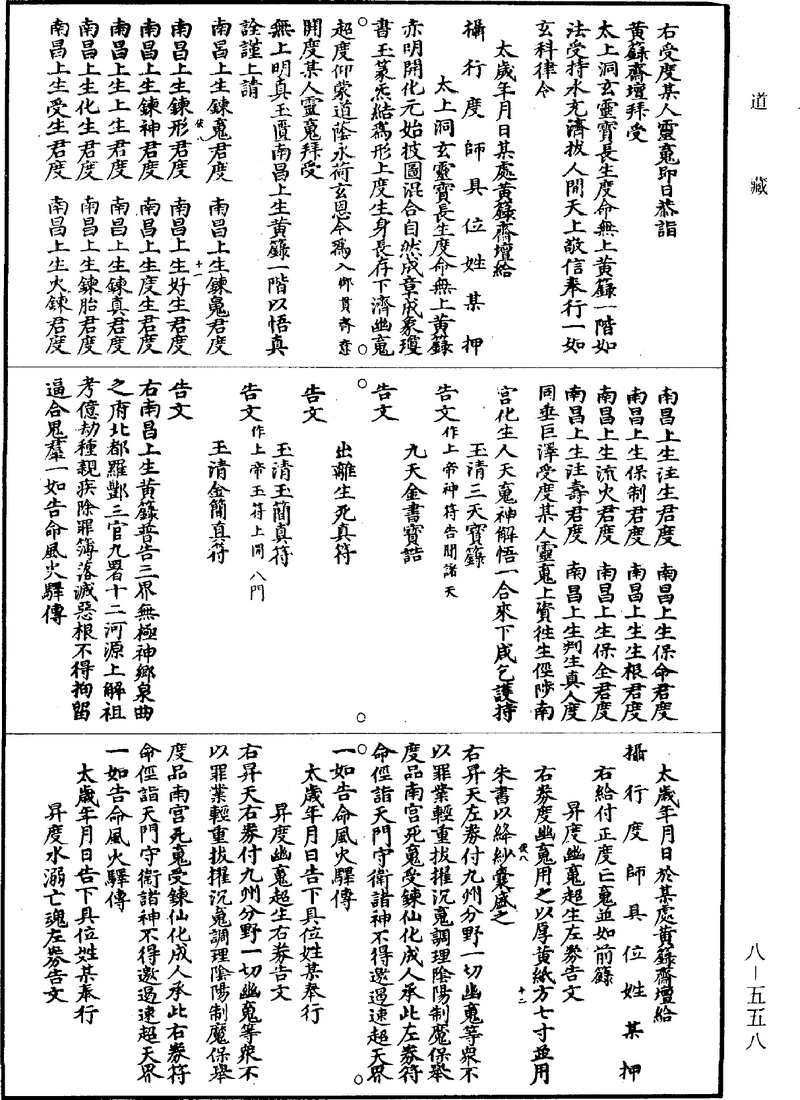 道藏
右受度某人靈魂即日恭詣
黃籙齋壇拜受
太上洞玄靈寶長生度命無上黃籙一階如
法受持永充濟拔人間天上敬信奉行一如
玄科律令
太歲年月日某處黃籙齋壇給
攝行度師具位姓某押
太上洞玄靈寶長生度命無上黃籙
赤明開化元始披圖混合自然成章成象瓊
書玉篆炁結為形上度生身長存下濟幽魂
超度仰蒙道蔭永荷玄恩今為入鄉貫齋意
開度某人靈魂拜受
無上明真玉匱南昌上生黃籙一階以悟真
詮謹上請
南昌上生鍊魂君度 南昌上生鍊魄君度
南昌上生鍊形君度 南昌上生好生君度
南昌上生鍊神君度 南昌上生度生君度
南昌上生上生君度 南昌上生鍊真君度
南昌上生化生君度 南昌上生鍊胎君度
南昌上生受生君度 南昌上生火鍊君度
南昌上生注生君度 南昌上生保命君度
南昌上生保制君度 南昌上生生根君度
南昌上生流火君度 南昌上生保全君度
南昌上生注壽君度 南昌上生判生真人度
同垂巨澤受度某人靈魂上資徃生徑陟南
宮化生人天魂神解悟一合來下咸乞護持
玉清三天寶籙
告文作上帝神符告聞諸天
九天金書寶誥
告文
出離生死真符
告文
玉清玉簡真符
告文作上帝玉符上聞八門
玉清金簡真符
告文
右南昌上生黃籙普告三界無極神鄉泉曲
之府北都羅酆三官九署十二河源上解祖
考億劫種親疾除罪簿落滅惡根不得拘留
逼合鬼羣一如告命風火驛傳
太歲年月日於某處黃籙齋壇給
攝行度師具位姓某押
右給付正度亡魂並如前籙
昇度幽魂超生左券告文
右券度幽魂用之以厚黃紙方七寸並用
朱書以絳紗囊盛之
右昇天左券付九州分野一切幽魂等眾不
以罪業輕重拔擢沉魂調理陰陽制魔保舉
度品南宮死魂受鍊仙化成人承此左券符
命徑詣天門守衛諸神不得邀遏速超天界
一如告命風火驛傳
太歲年月日告下具位姓某奉行
昇度幽魂超生右券告文
右昇天右券付九州分野一切幽魂等眾不
以罪業輕重拔擢沉魂調理陰陽制魔保舉
度品南宮死魂受鍊仙化成人承此右券符
命徑詣天門守衛諸神不得邀遏速超天界
一如告命風火驛傳
太歲年月日告下具位姓某奉行
昇度水溺亡魂左券告文
八－五五八